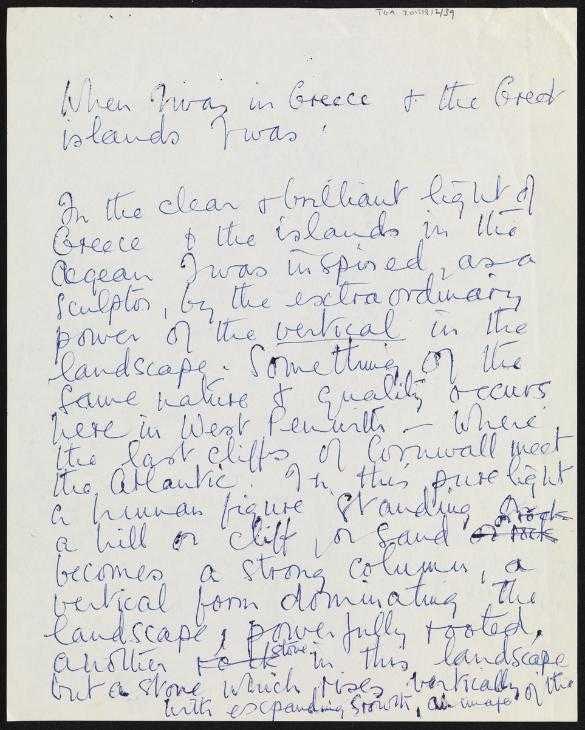 TGA 20132/2/39
When I was in Greece & the Greek
islands I was
In the clear & brilliant light of
Greece & the islands in the
Aegean I was inspired, as a
Sculptor, by the extraordinary
power of the vertical in the
landscape. Something of the
same nature & quality occurs
here in West Penwith – where
the last cliffs of Cornwall meet
the Atlantic. In this pure light
a human figure standing on
a hill or cliff, or sand or rock
becomes a strong column, a
vertical form dominating the
landscape, powerfully rooted,
another rock stone in this landscape
but a stone which rises vertically
with expanding growth, an image of the